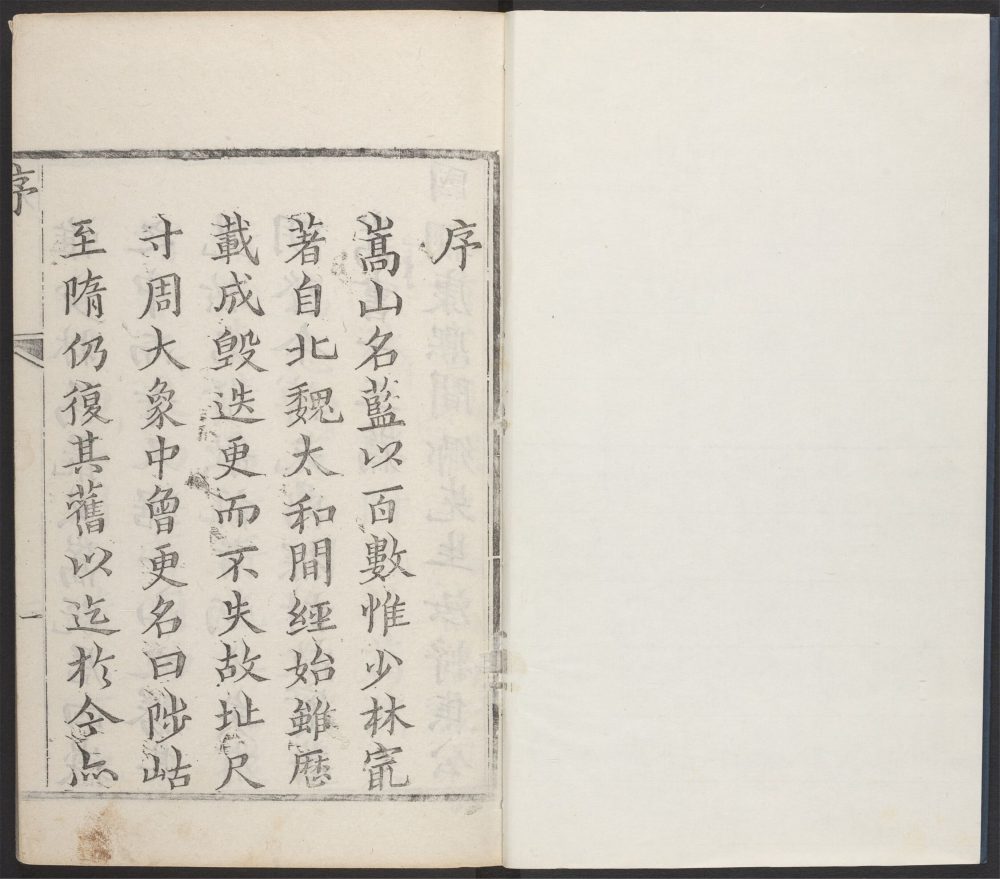 序
嵩山名藍以百數惟少林㝡
著自北魏太和間經始雖歷
載成毀迭更而不失故址尺
寸周大象中曾更名曰陟岵
至隋仍復其舊以迄於今㸃
序
一